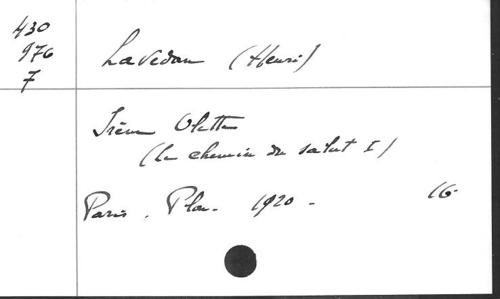 430
976
7
Lavedan (Henri)
Irène Olette
(Le chemin du salut I)
Paris. Plon. 1920 - 16-